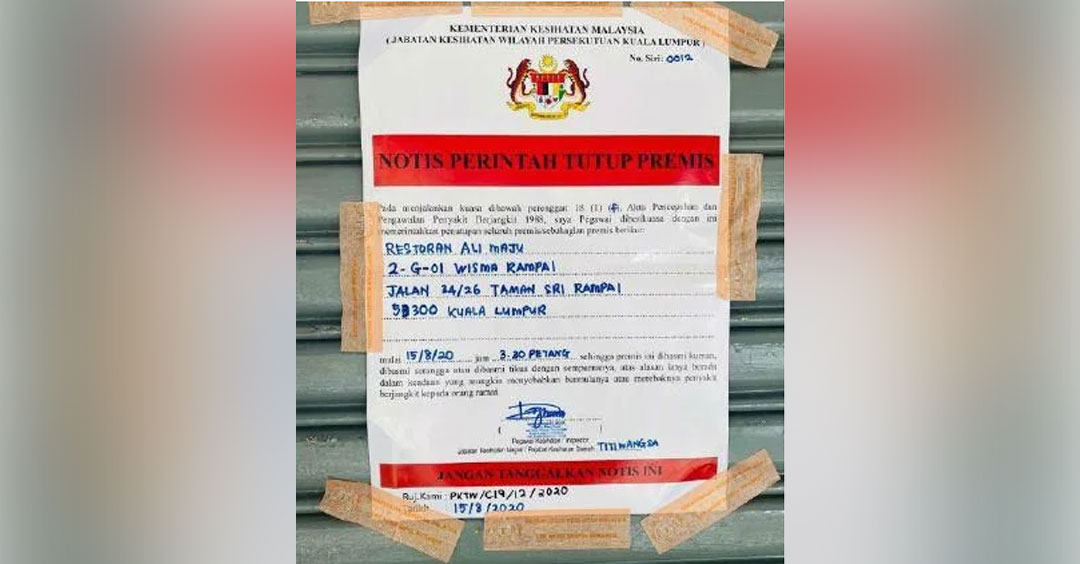 KEMENTERIAN KESIHATAN MALAYSIA
( JABATAN KESIHATAN WILAYAH PERSEKUTUAN KUALA LUMPUR )
No. Siri: 0012
NOTIS PERINTAH TUTUP PREMIS
Pada menjalankan kuasa dibawah perenggan 18 (1) (f), Akta Pencegahan dan
Pengawalan Penyakit Berjangkit 1988, saya Pegawai diberikuasa dengan ini
memerintahkan penutupan seluruh premis/sebahagian premis berikut:
RESTORAN ALI MAJU
2-G-01 WISMA RAMPAI
JALAN 34/26 TAMAN SRI RAMPAI
53300 KUALA LUMPUR
mulai 15/8/20 jam 3.20 PETANG sehingga premis ini dibasmi kuman,
dibasmi serangga atau dibasmi tikus dengan sempurnanya, atas alasan ianya berada
dalam keadaan yang mungkin menyebabkan bermulanya atau merebaknya penyakit
berjangkit kepada orang ramai
Pegawai Kesihatan / Inspector
Jabatan Kesihatan Negeri / Pejabat Kesihatan Daerah TITIWANGSA
JANGAN TANGGALKAN NOTIS INI
Ruj.Kami : PKTW/C19/12/2020
Tarikh : 15/8/2020